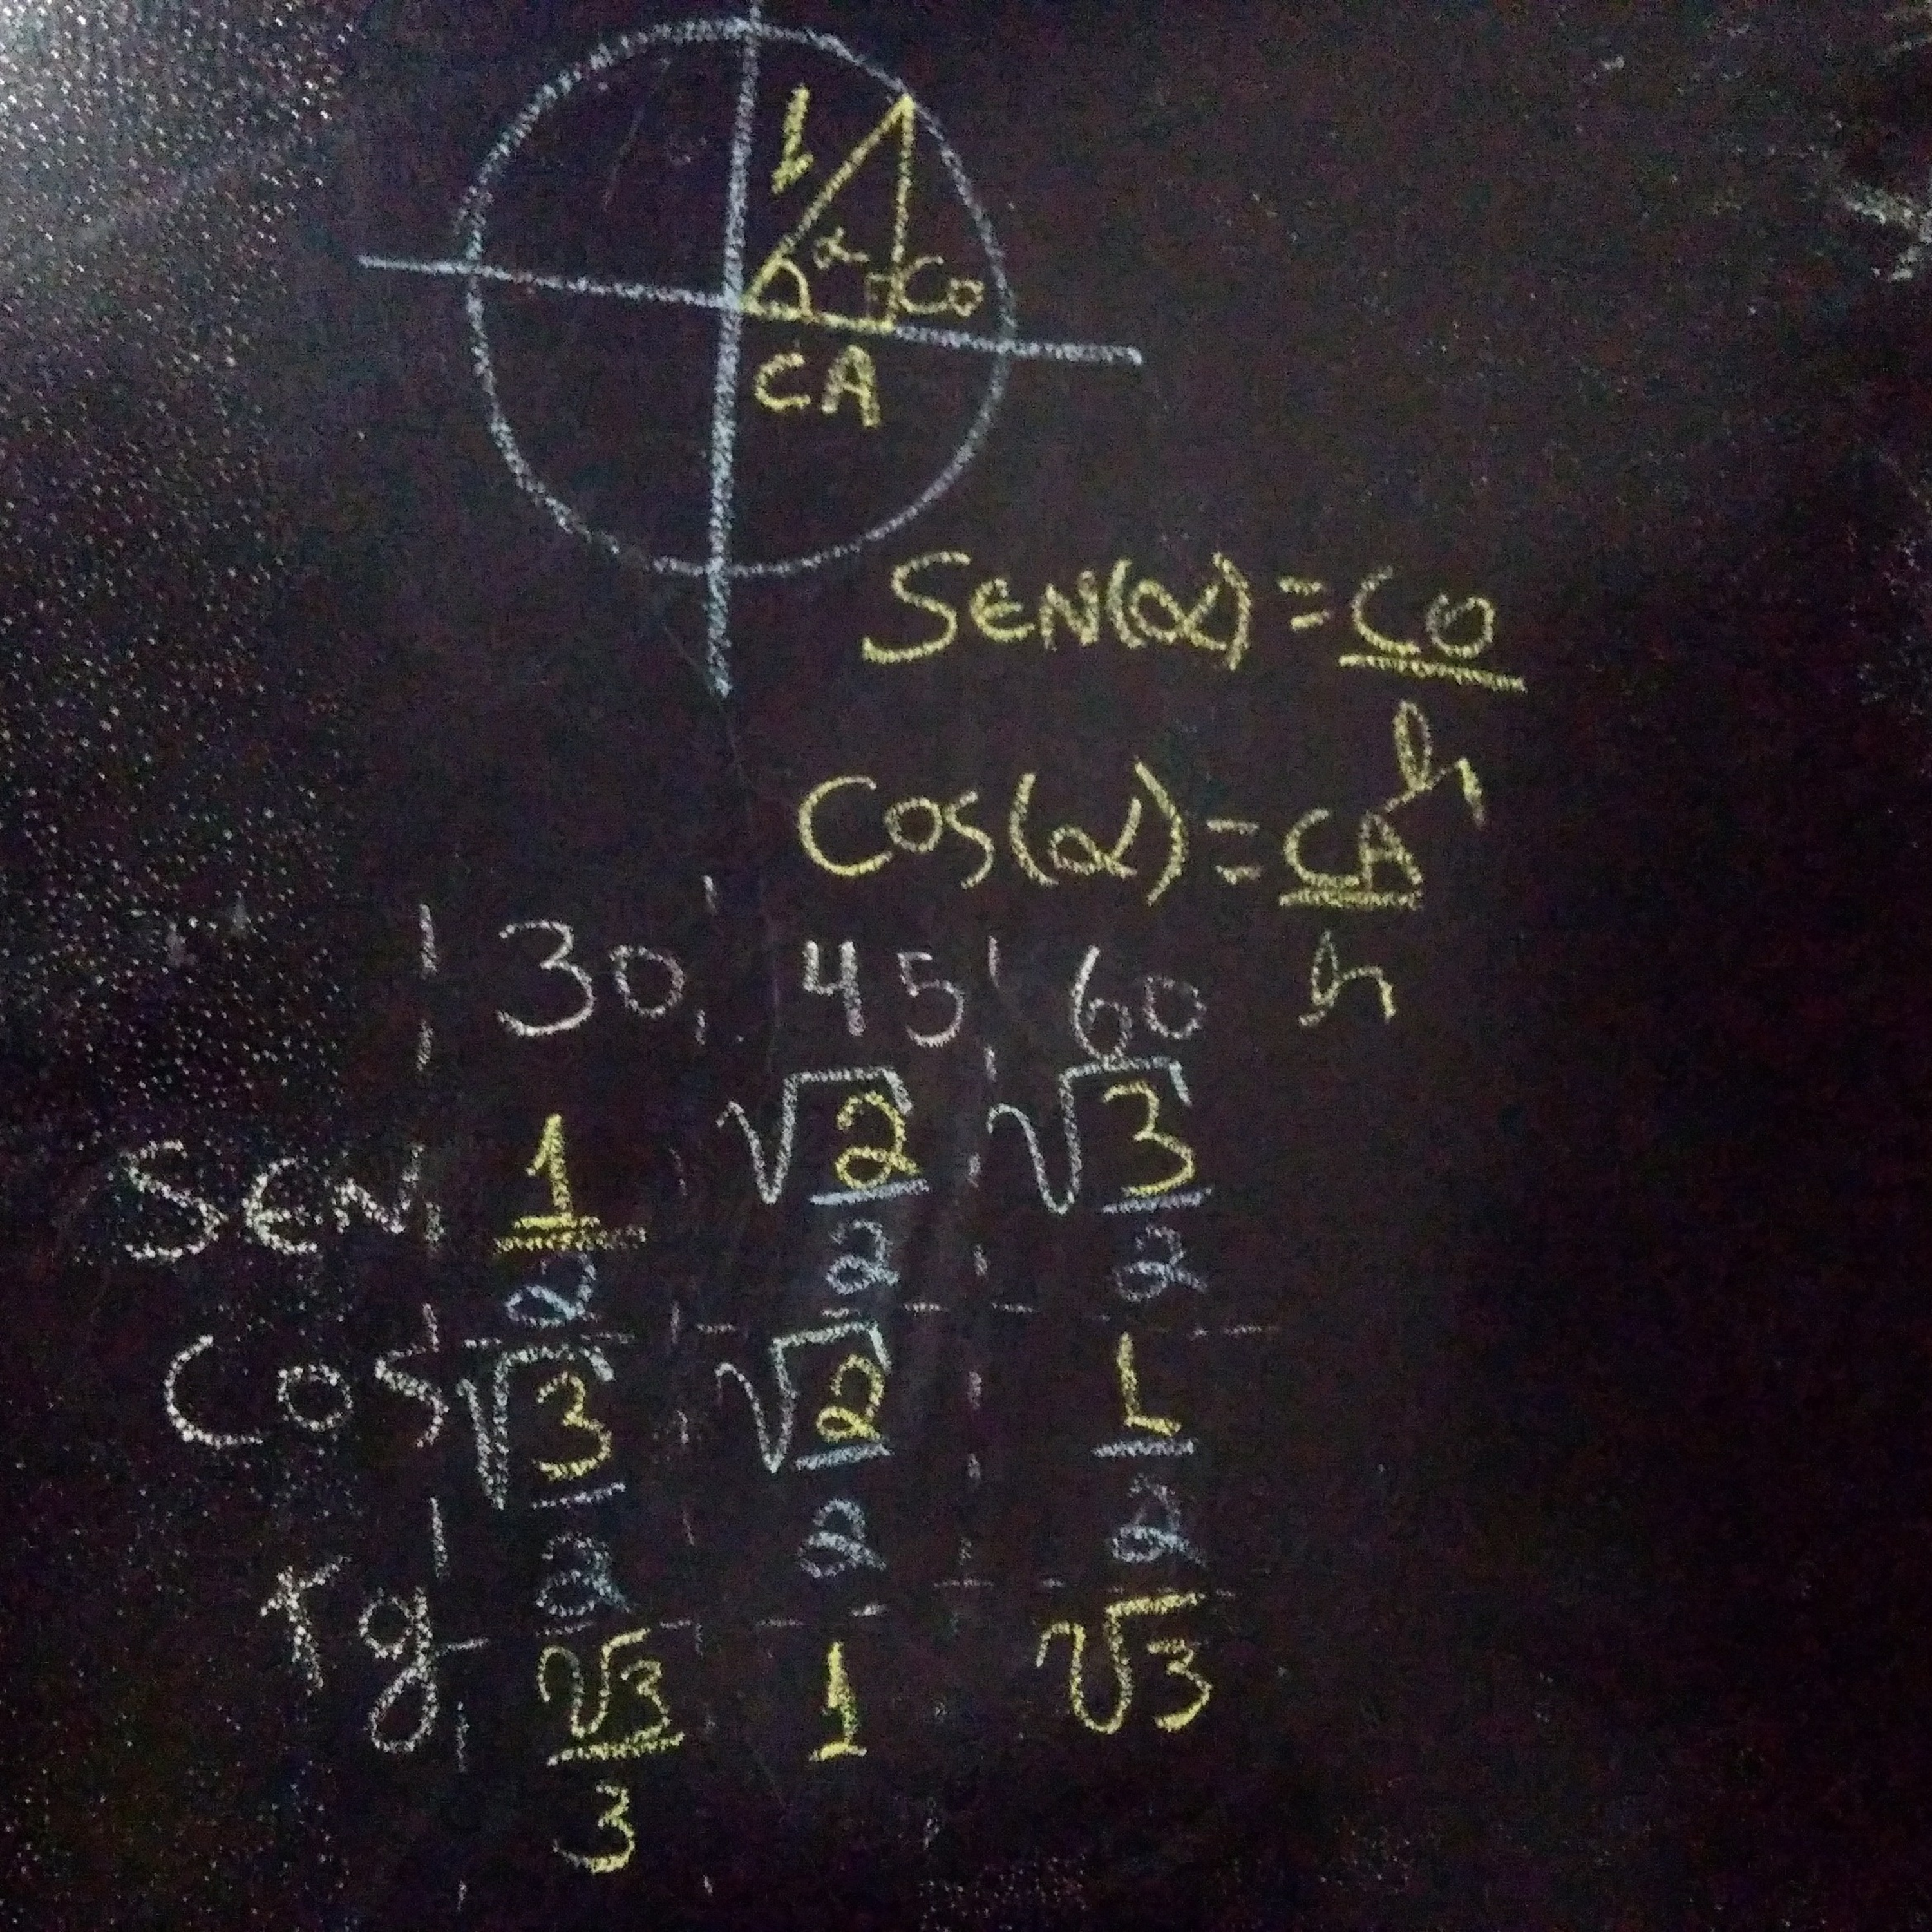 1
α
Co
CA
SEN(α) = Co
h
Cos(α) = CA
h
30 45 60
SEN 1/2 √2/2 √3/2
Cos √3/2 √2/2 1/2
Tg √3/3 1 √3